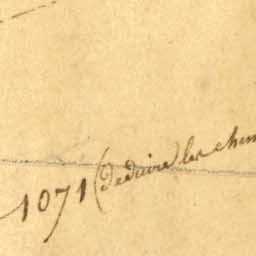 1071 (deduire les chem